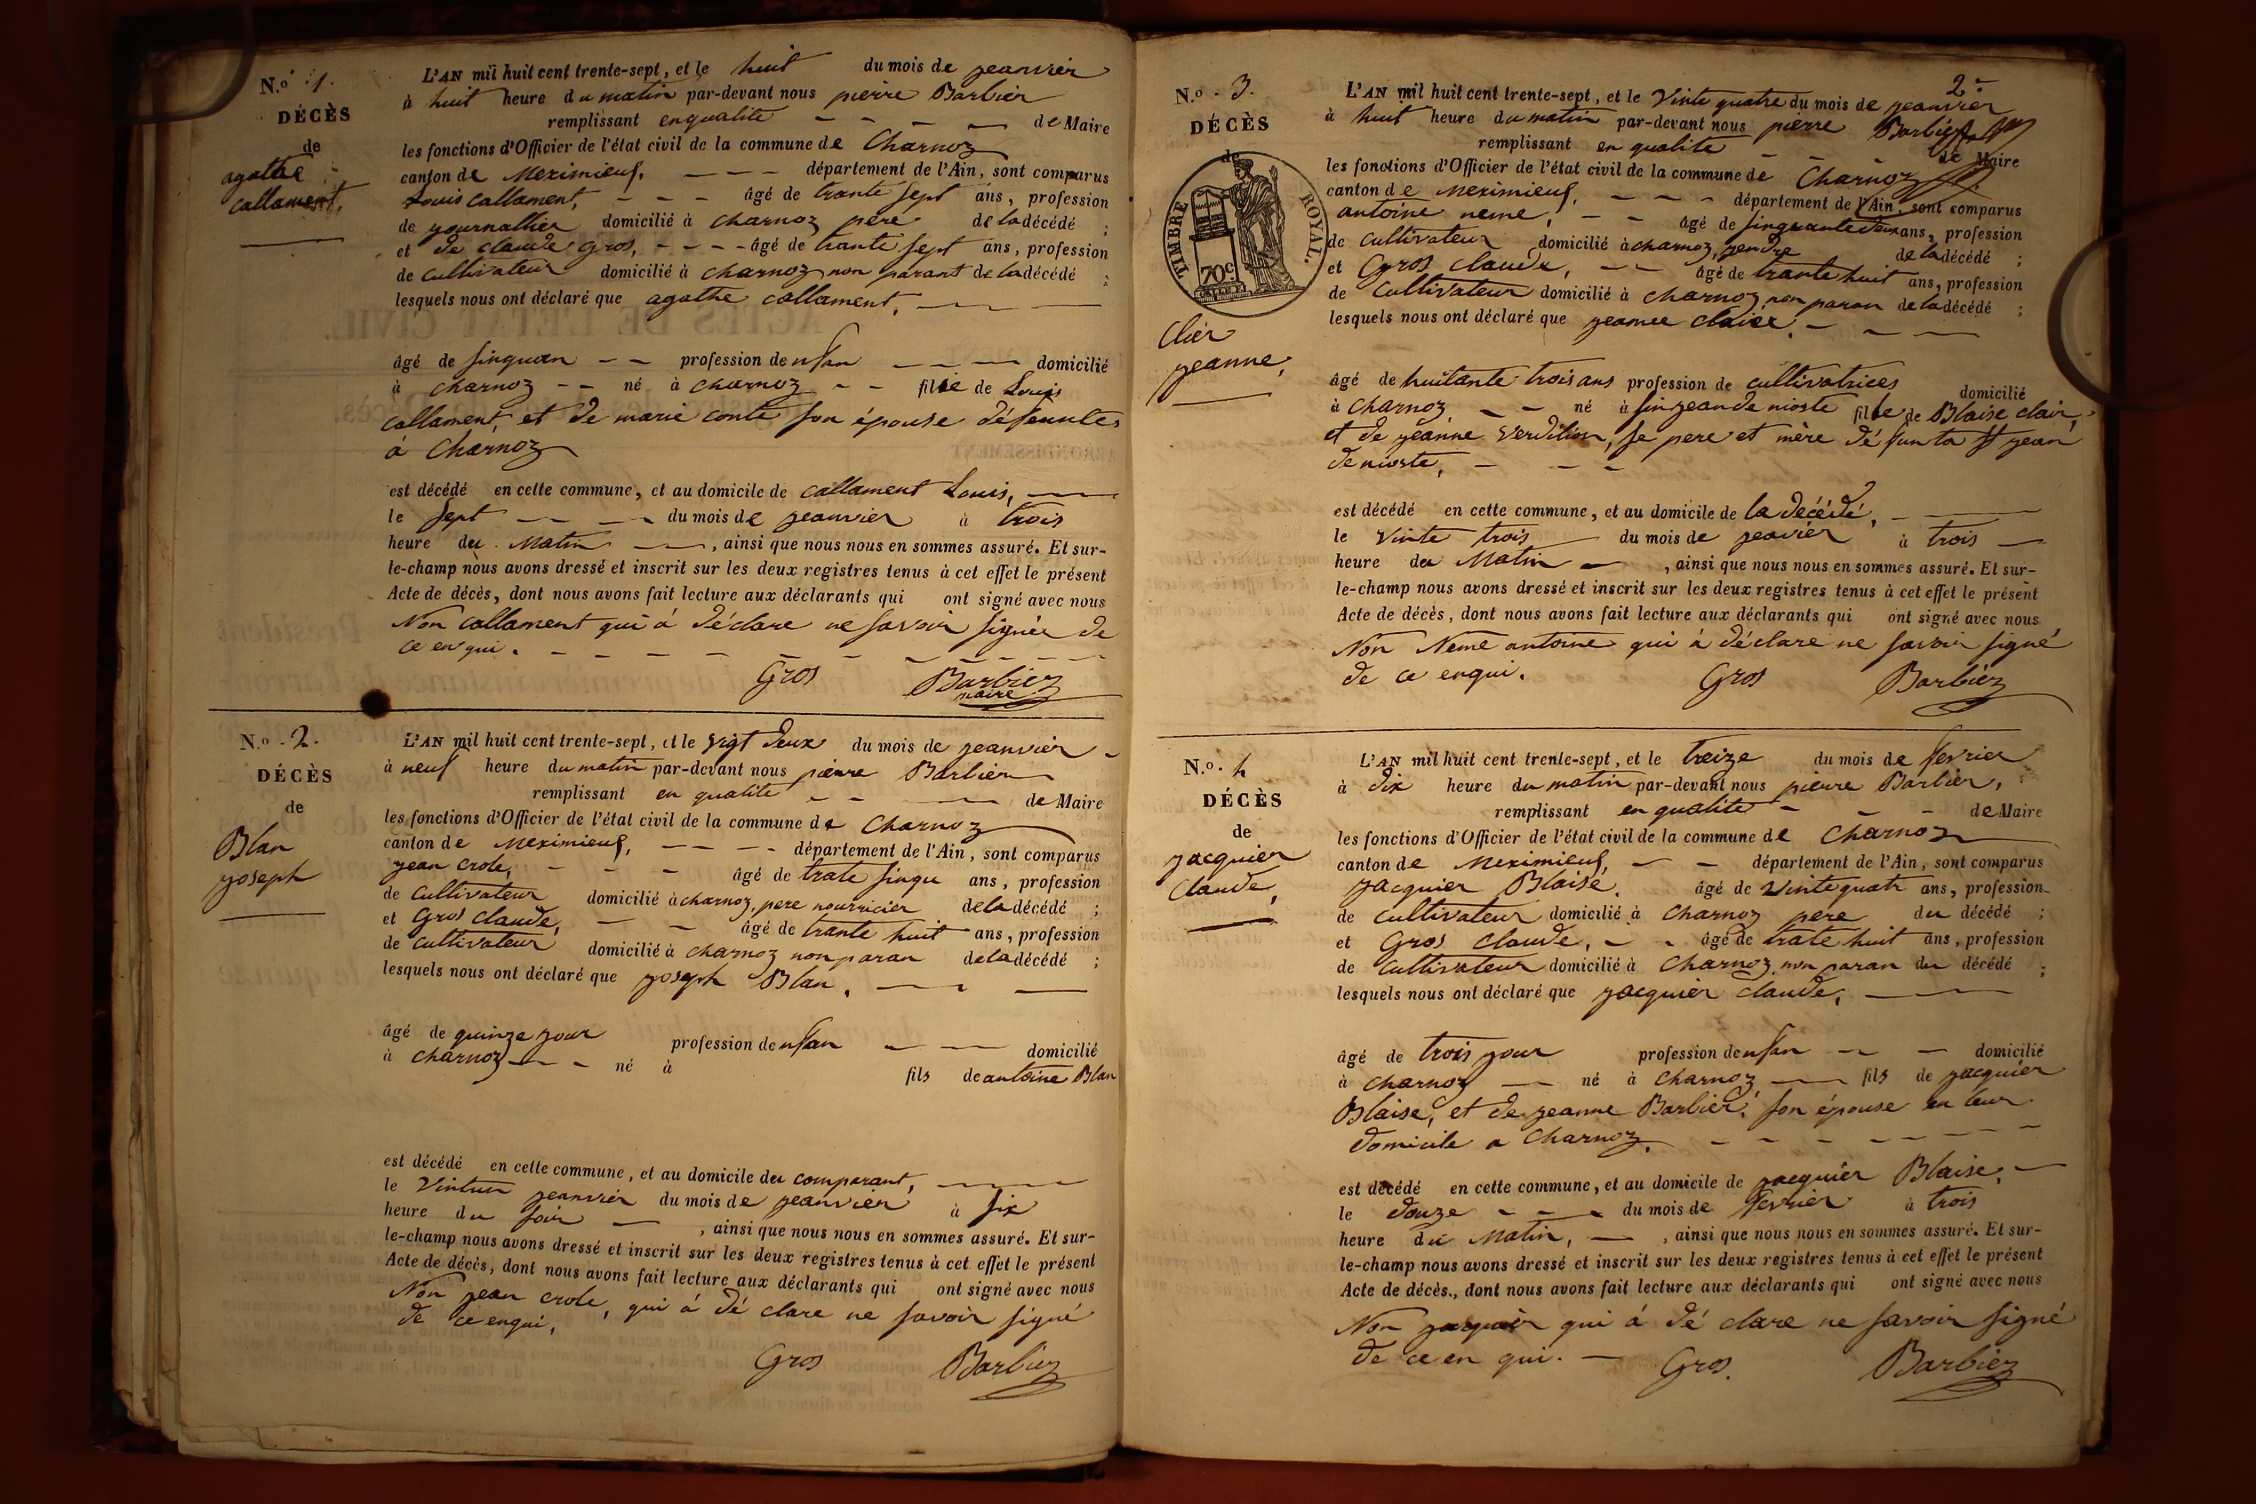 N.º 1.
DÉCÈS
de
agathe
callament,
L'AN mil huit cent trente-sept, et le huit du mois de jeanvier
à huit heure du matin par-devant nous pierre Barbier
remplissant en qualite de Maire
les fonctions d'Officier de l'état civil de la commune de Charnoz
canton de Meximieuf, département de l'Ain, sont comparus
Louis callament, âgé de trante sept ans, profession
de journallier domicilié à charnoz pere de la décédé ;
et de claude gros, âgé de trante sept ans, profession
de cultivateur domicilié à charnoz non parant de la décédé ;
lesquels nous ont déclaré que agathe callament,
âgé de sinquan profession denfan domicilié
à charnoz né à charnoz fille de Louis
callament, et de marie conte son épouse défeunte
à Charnoz
est décédé en cette commune, et au domicile de callament Louis,
le sept du mois de jeanvier à trois
heure du Matin, ainsi que nous nous en sommes assuré. Et sur-
le-champ nous avons dressé et inscrit sur les deux registres tenus à cet effet le présent
Acte de décès, dont nous avons fait lecture aux déclarants qui ont signé avec nous
Non callament qui á déclare ne savoir signée de
ce enqui.
Gros Barbier
maire
N.º 2.
DÉCÈS
de
Blan
joseph
L'AN mil huit cent trente-sept, et le vigt deux du mois de jeanvier
à neuf heure du matin par-devant nous pierre Barbier
remplissant en qualite de Maire
les fonctions d'Officier de l'état civil de la commune de Charnoz
canton de Meximieuf, département de l'Ain, sont comparus
jean crole, âgé de trate sinqu ans, profession
de cultivateur domicilié à charnoz, pere nourricier de la décédé ;
et Gros claude, âgé de trante huit ans, profession
de cultivateur domicilié à charnoz non paran de la décédé ;
lesquels nous ont déclaré que joseph Blan,
âgé de quinze jour profession denfan domicilié
à charnoz né à fils de antoine Blan
est décédé en cette commune, et au domicile du comparant,
le Vintun jeanvier du mois de jeanvier à six
heure du soir, ainsi que nous nous en sommes assuré. Et sur-
le-champ nous avons dressé et inscrit sur les deux registres tenus à cet effet le présent
Acte de décès, dont nous avons fait lecture aux déclarants qui ont signé avec nous
Non jean crole, qui á dé clare ne savoir signé
de ce enqui,
Gros Barbier
2
N.º 3.
DÉCÈS
de
TIMBRE ROYAL.
70 c
Clèr
jeanne,
L'AN mil huit cent trente-sept, et le Vinte quatre du mois de jeanvier
à huit heure du matin par-devant nous pierre Barbier
remplissant en qualite de Maire
les fonctions d'Officier de l'état civil de la commune de Charnoz
canton de Meximieuf, département de l'Ain, sont comparus
antoine neme, âgé de sinquante deux ans, profession
de cultivateur domicilié à charnoz, jendre de la décédé ;
et Gros claude, âgé de trante huit ans, profession
de cultivateur domicilié à charnoz non paran de la décédé ;
lesquels nous ont déclaré que jeanne claire,
âgé de huitante trois ans profession de cultivatrices domicilié
à charnoz né à sinjean de nioste fille de Blaise clair,
et de jeanne Verdilion, se pere et mère défunta St jean
de nioste,
est décédé en cette commune, et au domicile de la décédé,
le Vinte trois du mois de jeavier à trois
heure du Matin, ainsi que nous nous en sommes assuré. Et sur-
le-champ nous avons dressé et inscrit sur les deux registres tenus à cet effet le présent
Acte de décès, dont nous avons fait lecture aux déclarants qui ont signé avec nous
Non Neme antoine qui á déclare ne savoir signé
de ce enqui.
Gros Barbier
N.º 4
DÉCÈS
de
jacquier
Claude,
L'AN mil huit cent trente-sept, et le treize du mois de fevrier
à dix heure du matin par-devant nous pierre Barbier,
remplissant en qualite de Maire
les fonctions d'Officier de l'état civil de la commune de Charnoz
canton de Meximieuf département de l'Ain, sont comparus
jacquier Blaise, âgé de Vinte quatr ans, profession
de cultivateur domicilié à charnoz pere du décédé ;
et Gros claude, âgé de trate huit ans, profession
de cultivateur domicilié à charnoz non paran du décédé ;
lesquels nous ont déclaré que jacquier claude,
âgé de trois jour profession denfan domicilié
à charnoz né à charnoz fils de jacquier
Blaise, et de jeanne Barbier, son épouse en leur
domicile a charnoz.
est décédé en cette commune, et au domicile de jacquier Blaise,
le douze du mois de fevrier à trois
heure du Matin, ainsi que nous nous en sommes assuré. Et sur-
le-champ nous avons dressé et inscrit sur les deux registres tenus à cet effet le présent
Acte de décès, dont nous avons fait lecture aux déclarants qui ont signé avec nous
Non jacquier qui á dé clare ne savoir signé
de ce en qui.
Gros. Barbier